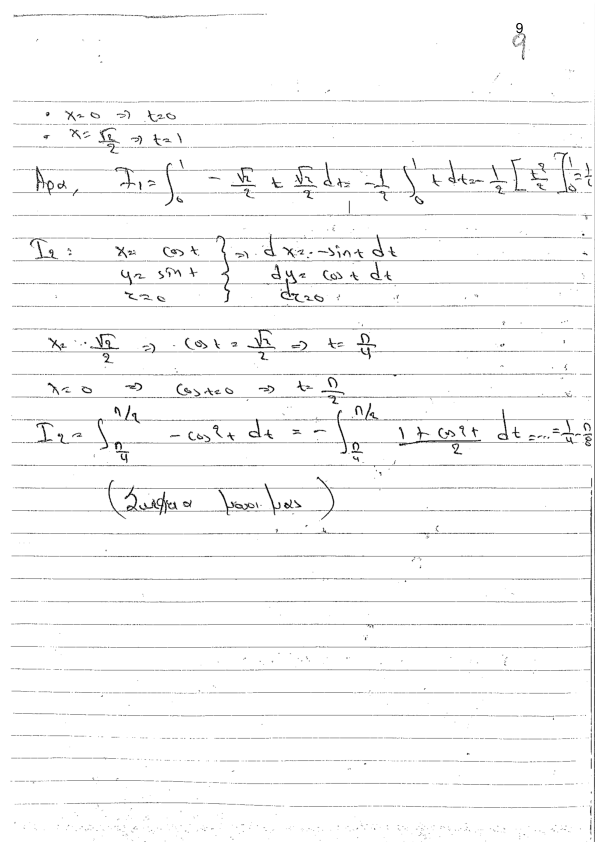 9
9
• x=0 => t=0
• x= √2/2 => t=1
Αρα, I1 = ∫₀¹ - √2/2 t √2/2 dt = -1/2 ∫₀¹ t dt = -1/2 [t²/2]₀¹ =
I2: x= cost } => dx = -sint dt
y= sint } dy= cost dt
z=0 } dz=0
x= √2/2 => cost = √2/2 => t= π/4
x=0 => cost=0 => t= π/2
I2 = ∫_{π/4}^{π/2} -cos²t dt = - ∫_{π/4}^{π/2} (1+cos2t)/2 dt = ... = 1/4 - π/8
(Συνέχεια μας)